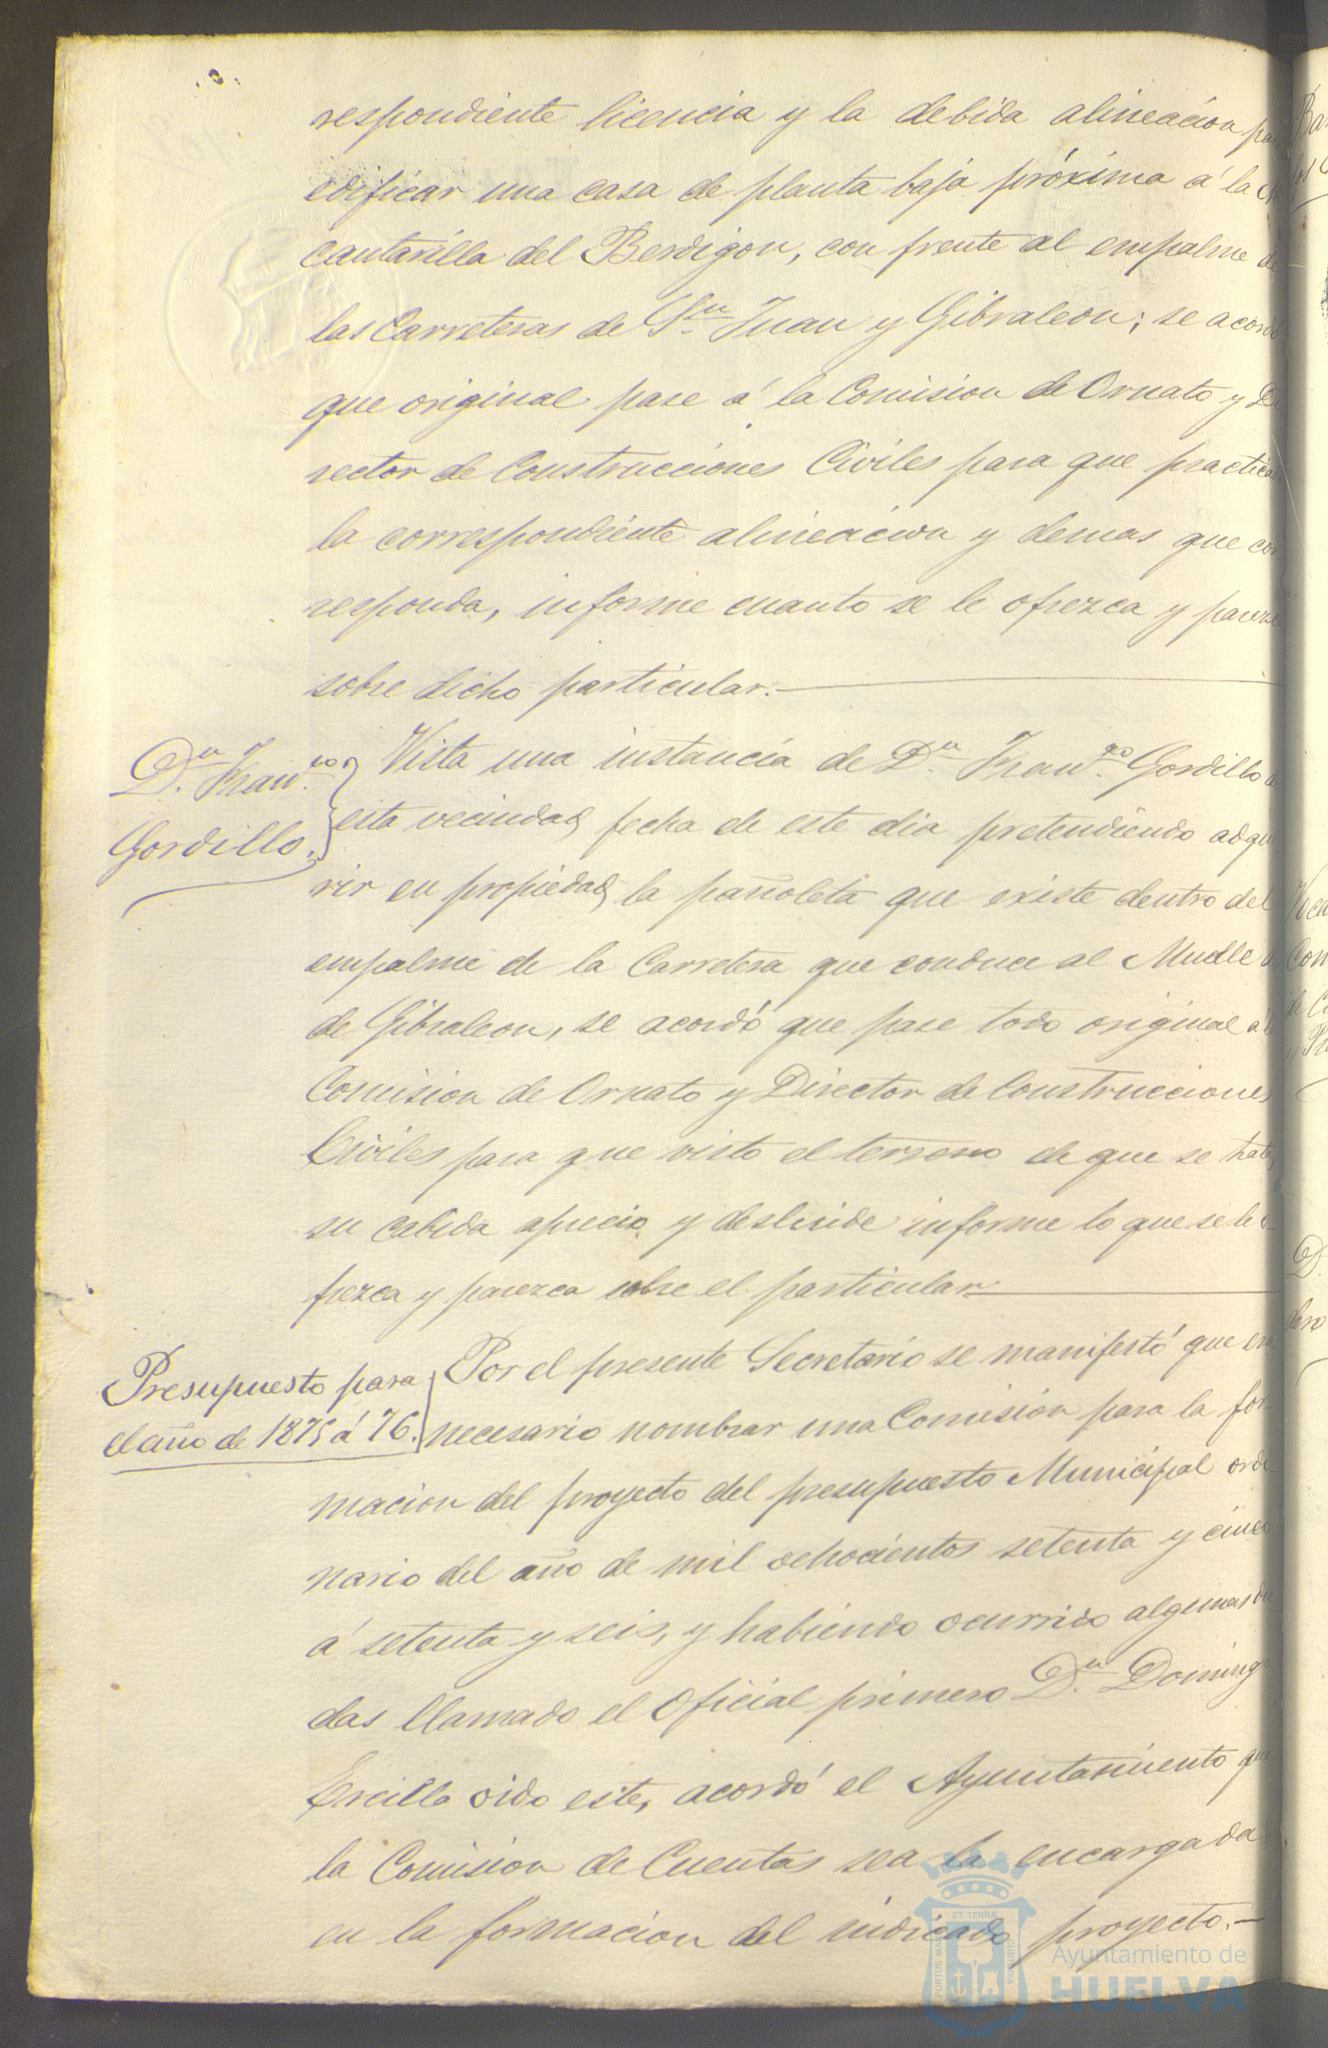 respondiente licencia y la debida alineacion pa
edificar una casa de planta baja próxima á la
cantarilla del Berdigon, con frente al empalme de
las Carreteras de Sn. Juan y Gibraleon; se acord
que original pase á la Comision de Ornato y Di
rector de Construcciones Civiles para que practica
la correspondiente alineacion y demas que cor
responda, informe cuanto se le ofrezca y parezca
sobre dicho particular.
Dn. Franco.
Gordillo.
Vista una instancia de Dn. Franco. Gordillo de
esta vecindad fecha de este dia pretendiendo adqui
rir en propiedad la pañoleta que existe dentro del
empalme de la Carretera que conduce al Muelle
de Gibraleon, se acordó que pase todo original á l
Comision de Ornato y Director de Construcciones
Civiles para que visto el terreno de que se trate,
su cabida aprecio y deslinde informe lo que se le o
frezca y parezca sobre el particular.
Presupuesto para
el año de 1875 á 76.
Por el presente Secretario se manifestó que era
necesario nombrar una Comisión para la for
macion del proyecto del presupuesto Municipal ordi
nario del año de mil ochocientos setenta y cinco
á setenta y seis, y habiendo ocurrido algunas du
das llamado el Oficial primero Dn. Domingo
Ercilla oido este, acordó el Ayuntamiento que
la Comision de Cuentas sea la encargada
en la formacion del indicado proyecto.
PORTUS MARIS
ET TERRÆ
CUSTODIA
Ayuntamiento de
HUELVA